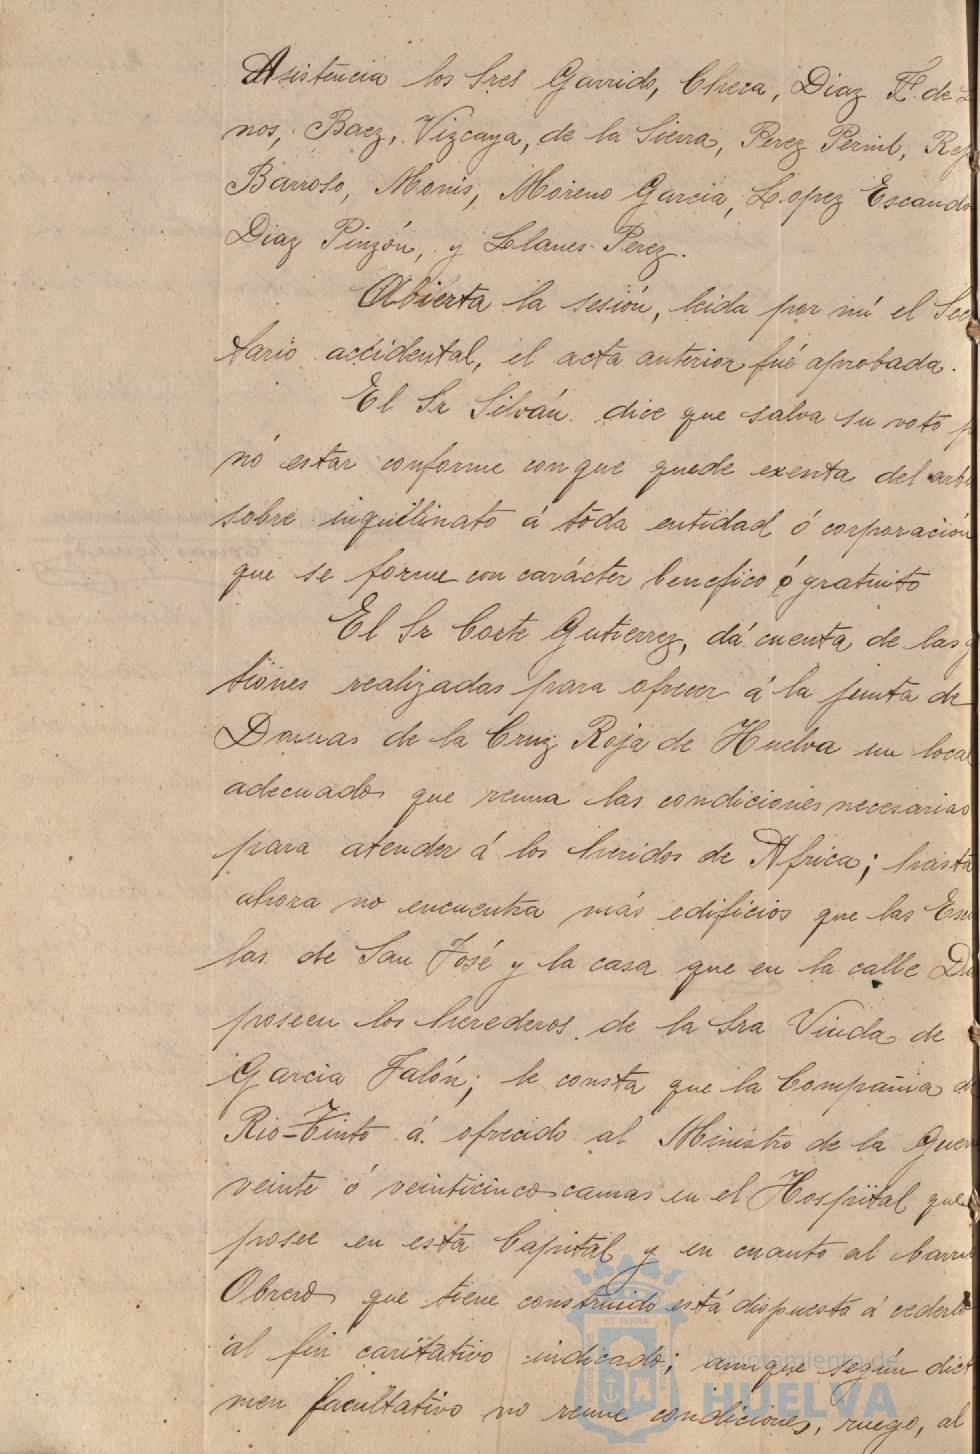 Asistencia los Sres Garrido, Checa, Diaz F. de L
nos, Baez, Vizcaya, de la Sierra, Perez Peninl, Rey
Barroso, Monis, Moreno Garcia, Lopez Escando
Diaz Pinzón, y Llanes Perez.
Abierta la sesión, leida por mí el Sec
tario accidental, el acta anterior fué aprobada.
El Sr Silván dice que salva su voto p
nó estar conforme con que quede exenta del arbi
sobre inquilinato á toda entidad ó corporación
que se forme con carácter benefico ó gratuito
El Sr Corte Gutierrez, dá cuenta de las g
tiones realizadas para ofrecer á la junta de
Damas de la Cruz Roja de Huelva un local
adecuado que reuna las condiciones necesarias
para atender á los heridos de Africa; hasta
ahora no encuentra más edificios que las Escu
las de San José y la casa que en la calle
poseen los herederos de la Sra Viuda de
Garcia Jalón; le consta que la Compañia de
Rio-Tinto á ofrecido al Ministro de la Guerr
veinte ó veinticinco camas en el Hospital que
posee en esta Capital y en cuanto al barrio
Obrero que tiene construido está dispuesta á cederlo
al fin caritativo indicado; aunque según dict
men facultativo no reune condiciones, ruego, al
Ayuntamiento de
HUELVA